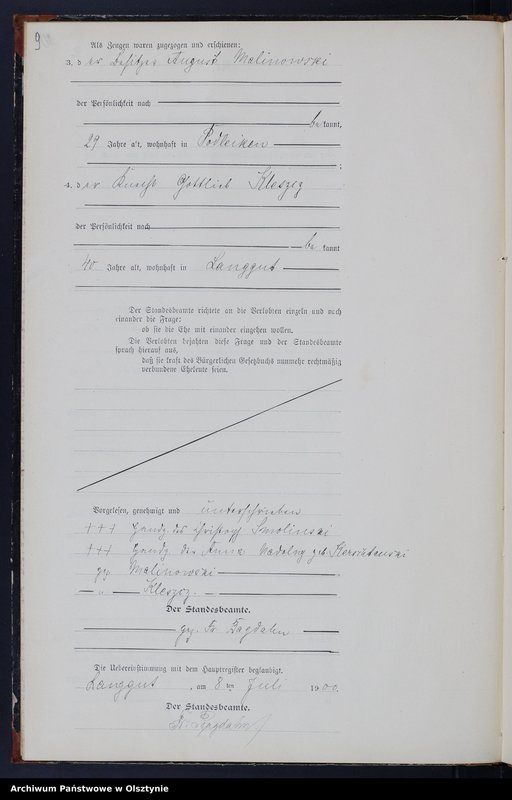 9
Als Zeugen waren zugezogen und erschienen:
3. der Besitzer August Malinowski
der Persönlichkeit nach
bekannt,
29 Jahre alt, wohnhaft in Podleiken
;
4. der Knecht Gottlieb Kleszez
der Persönlichkeit nach
bekannt
40 Jahre alt, wohnhaft in Langgut
Der Standesbeamte richtete an die Verlobten einzeln und nach
einander die Frage:
ob sie die Ehe mit einander eingehen wollen.
Die Verlobten bejahten diese Frage und der Standesbeamte
sprach hierauf aus,
daß sie kraft des Bürgerlichen Gesetzbuchs nunmehr rechtmäßig
verbundene Eheleute seien.
Vorgelesen, genehmigt und unterschrieben
+++ Handz. des Christoph Smolinski
+++ Handz. der Anna Nadolny geb.
gez. Malinowski
" Kleszez.
Der Standesbeamte.
gez. Fr.
Die Uebereinstimmung mit dem Hauptregister beglaubigt.
Langgut, am 8ten Juli 1900.
Der Standesbeamte.
Archiwum Państwowe w Olsztynie